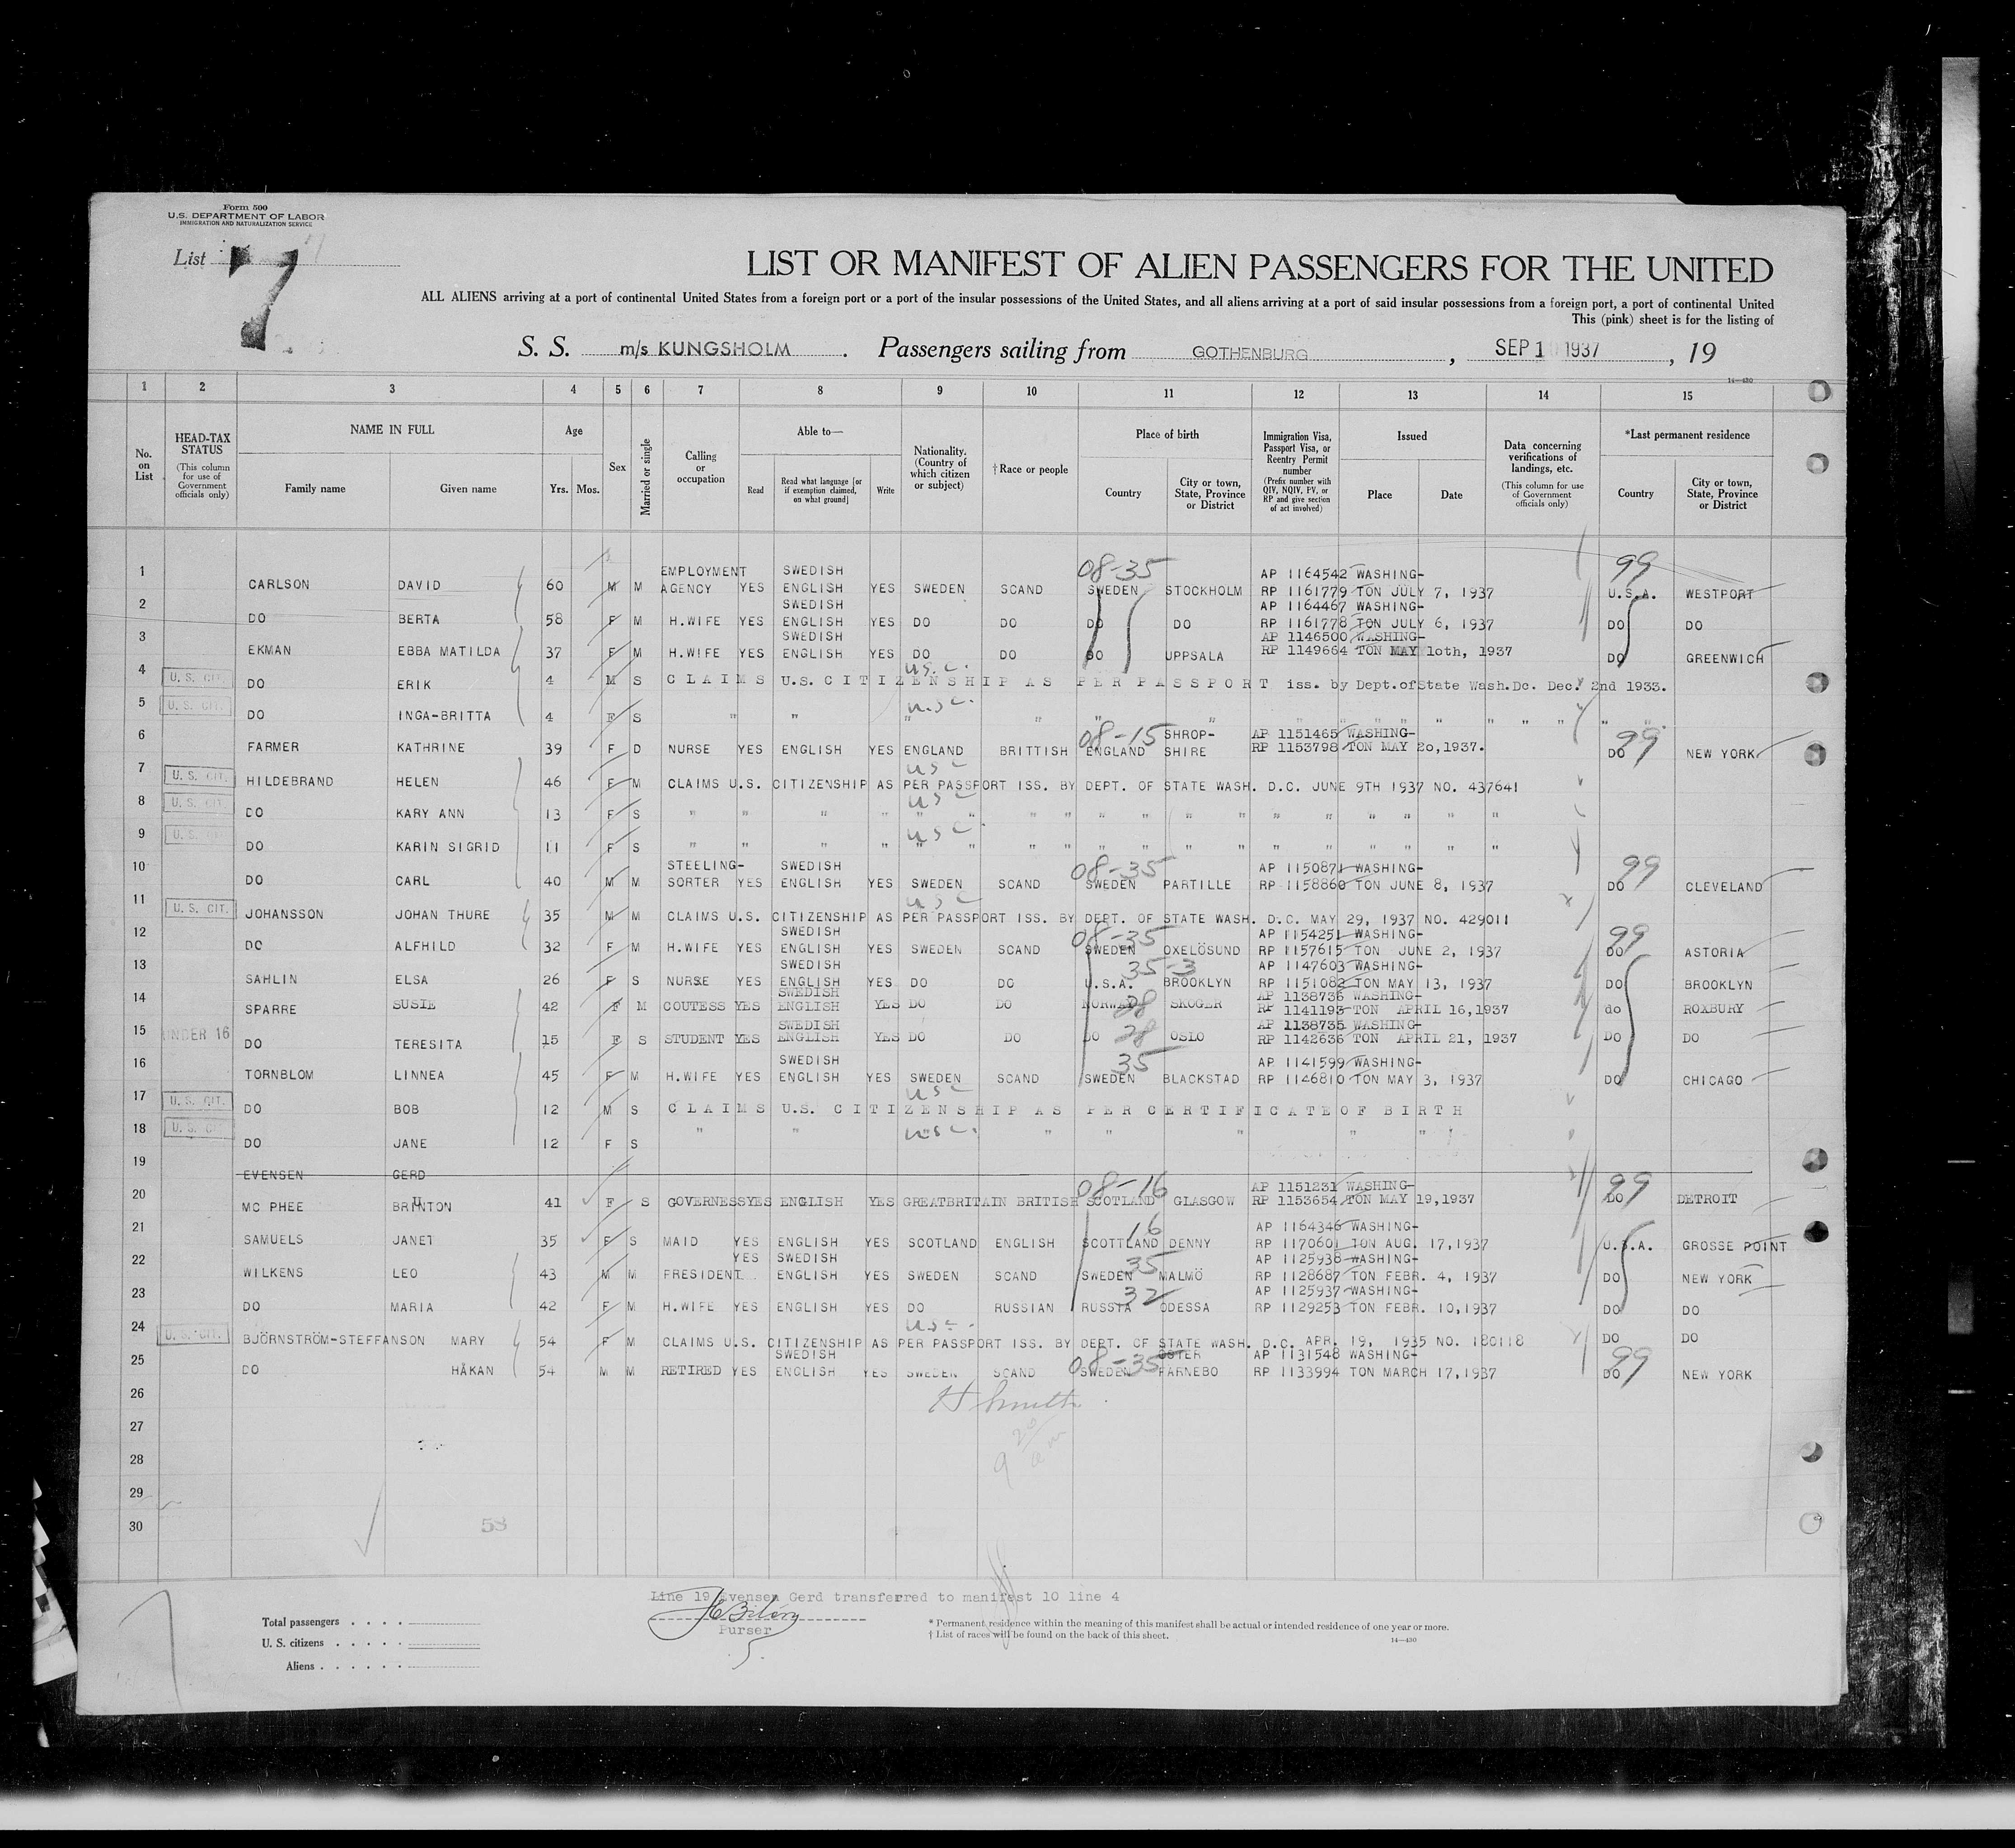 Form 500
U.S. DEPARTMENT OF LABOR
IMMIGRATION AND NATURALIZATION SERVICE
List 7
LIST OR MANIFEST OF ALIEN PASSENGERS FOR THE UNITED
ALL ALIENS arriving at a port of continental United States from a foreign port or a port of the insular possessions of the United States, and all aliens arriving at a port of said insular possessions from a foreign port, a port of continental United
This (pink) sheet is for the listing of
S. S. m/s KUNGSHOLM . Passengers sailing from GOTHENBURG , SEP 1 1937 , 19
14—430
1 2 3 4 5 6 7 8 9 10 11 12 13 14 15
No. on List
HEAD-TAX STATUS (This column for use of Government officials only)
NAME IN FULL Family name Given name
Age Yrs. Mos.
Sex
Married or single
Calling or occupation
Able to— Read Read what language [or if exemption claimed, on what ground] Write
Nationality. (Country of which citizen or subject)
†Race or people
Place of birth Country City or town, State, Province or District
Immigration Visa, Passport Visa, or Reentry Permit number (Prefix number with QIV, NQIV, PV, or RP and give section of act involved)
Issued Place Date
Data concerning verifications of landings, etc. (This column for use of Government officials only)
*Last permanent residence Country City or town, State, Province or District
1 EMPLOYMENT SWEDISH 08-35 AP 1164542 WASHING- 99
CARLSON DAVID 60 M M AGENCY YES ENGLISH YES SWEDEN SCAND SWEDEN STOCKHOLM RP 1161779 TON JULY 7, 1937 U.S.A. WESTPORT
2 SWEDISH AP 1164467 WASHING-
DO BERTA 58 F M H.WIFE YES ENGLISH YES DO DO DO DO RP 1161778 TON JULY 6, 1937 DO DO
3 SWEDISH AP 1146500 WASHING-
EKMAN EBBA MATILDA 37 F M H.WIFE YES ENGLISH YES DO DO DO UPPSALA RP 1149664 TON MAY 10th, 1937 DO GREENWICH
4 U. S. CIT. u.s.c.
DO ERIK 4 M S CLAIMS U.S. CITIZENSHIP AS PER PASSPORT iss. by Dept.ofState Wash.Dc. Dec. 2nd 1933.
5 U. S. CIT. u.s.c.
DO INGA-BRITTA 4 F S " " " " " " " " " " " " " " " "
6 08-15 SHROP- AP 1151465 WASHING- 99
FARMER KATHRINE 39 F D NURSE YES ENGLISH YES ENGLAND BRITTISH ENGLAND SHIRE RP 1153798 TON MAY 20,1937. DO NEW YORK
7 U. S. CIT. usc
HILDEBRAND HELEN 46 F M CLAIMS U.S. CITIZENSHIP AS PER PASSPORT ISS. BY DEPT. OF STATE WASH. D.C. JUNE 9TH 1937 NO. 437641
8 U. S. CIT. usc
DO KARY ANN 13 F S " " " " " " " " " " " " " " " " " "
9 U. S. usc
DO KARIN SIGRID 11 F S " " " " " " " " " " " " " " " " " "
10 STEELING- SWEDISH 08-35 AP 1150871 WASHING- 99
DO CARL 40 M M SORTER YES ENGLISH YES SWEDEN SCAND SWEDEN PARTILLE RP 1158860 TON JUNE 8, 1937 DO CLEVELAND
11 U. S. CIT. usc
JOHANSSON JOHAN THURE 35 M M CLAIMS U.S. CITIZENSHIP AS PER PASSPORT ISS. BY DEPT. OF STATE WASH. D.C. MAY 29, 1937 NO. 429011
12 SWEDISH 08-35 AP 1154251 WASHING- 99
DO ALFHILD 32 F M H.WIFE YES ENGLISH YES SWEDEN SCAND SWEDEN OXELÖSUND RP 1157615 TON JUNE 2, 1937 DO ASTORIA
13 SWEDISH 35-3 AP 1147603 WASHING-
SAHLIN ELSA 26 F S NURSE YES ENGLISH YES DO DO U.S.A. BROOKLYN RP 1151082 TON MAY 13, 1937 DO BROOKLYN
14 SWEDISH AP 1138736 WASHING-
SPARRE SUSIE 42 F M COUTESS YES ENGLISH YES DO DO NORWAY 28 SKOGER RP 1141193 TON APRIL 16,1937 do ROXBURY
15 UNDER 16 SWEDISH AP 1138735 WASHING-
DO TERESITA 15 F S STUDENT YES ENGLISH YES DO DO DO 28 OSLO RP 1142636 TON APRIL 21, 1937 DO DO
16 SWEDISH 35 AP 1141599 WASHING-
TORNBLOM LINNEA 45 F M H.WIFE YES ENGLISH YES SWEDEN SCAND SWEDEN BLACKSTAD RP 1146810 TON MAY 3, 1937 DO CHICAGO
17 U. S. CIT. usc
DO BOB 12 M S CLAIMS U.S. CITIZENSHIP AS PER CERTIFICATE OF BIRTH
18 U. S. usc.
DO JANE 12 F S " " " " " " " "
19
EVENSEN GERD
20 08-16 AP 1151231 WASHING- 99
MC PHEE BRUNTON 41 F S GOVERNESS YES ENGLISH YES GREATBRITAIN BRITISH SCOTLAND GLASGOW RP 1153654 TON MAY 19,1937 DO DETROIT
21 16 AP 1164346 WASHING-
SAMUELS JANET 35 F S MAID YES ENGLISH YES SCOTLAND ENGLISH SCOTTLAND DENNY RP 1170601 TON AUG. 17,1937 U.S.A. GROSSE POINT
22 YES SWEDISH 35 AP 1125938 WASHING-
WILKENS LEO 43 M M PRESIDENT ENGLISH YES SWEDEN SCAND SWEDEN MALMÖ RP 1128687 TON FEBR. 4, 1937 DO NEW YORK
23 32 AP 1125937 WASHING-
DO MARIA 42 F M H.WIFE YES ENGLISH YES DO RUSSIAN RUSSIA ODESSA RP 1129253 TON FEBR. 10,1937 DO DO
24 U. S. CIT. usc.
BJÖRNSTRÖM-STEFFANSON MARY 54 F M CLAIMS U.S. CITIZENSHIP AS PER PASSPORT ISS. BY DEPT. OF STATE WASH. D.C. APR. 19, 1935 NO. 180118 DO DO
25 SWEDISH 08-35 ÖSTER AP 1131548 WASHING- 99
DO HÅKAN 54 M M RETIRED YES ENGLISH YES SWEDEN SCAND SWEDEN FARNEBO RP 1133994 TON MARCH 17,1937 DO NEW YORK
26 H Smith
27
28
29
30
53
Line 19 Evensen Gerd transferred to manifest 10 line 4
Purser
Total passengers . . . .
U. S. citizens . . . . .
Aliens . . . . . .
* Permanent residence within the meaning of this manifest shall be actual or intended residence of one year or more.
† List of races will be found on the back of this sheet.
14—430